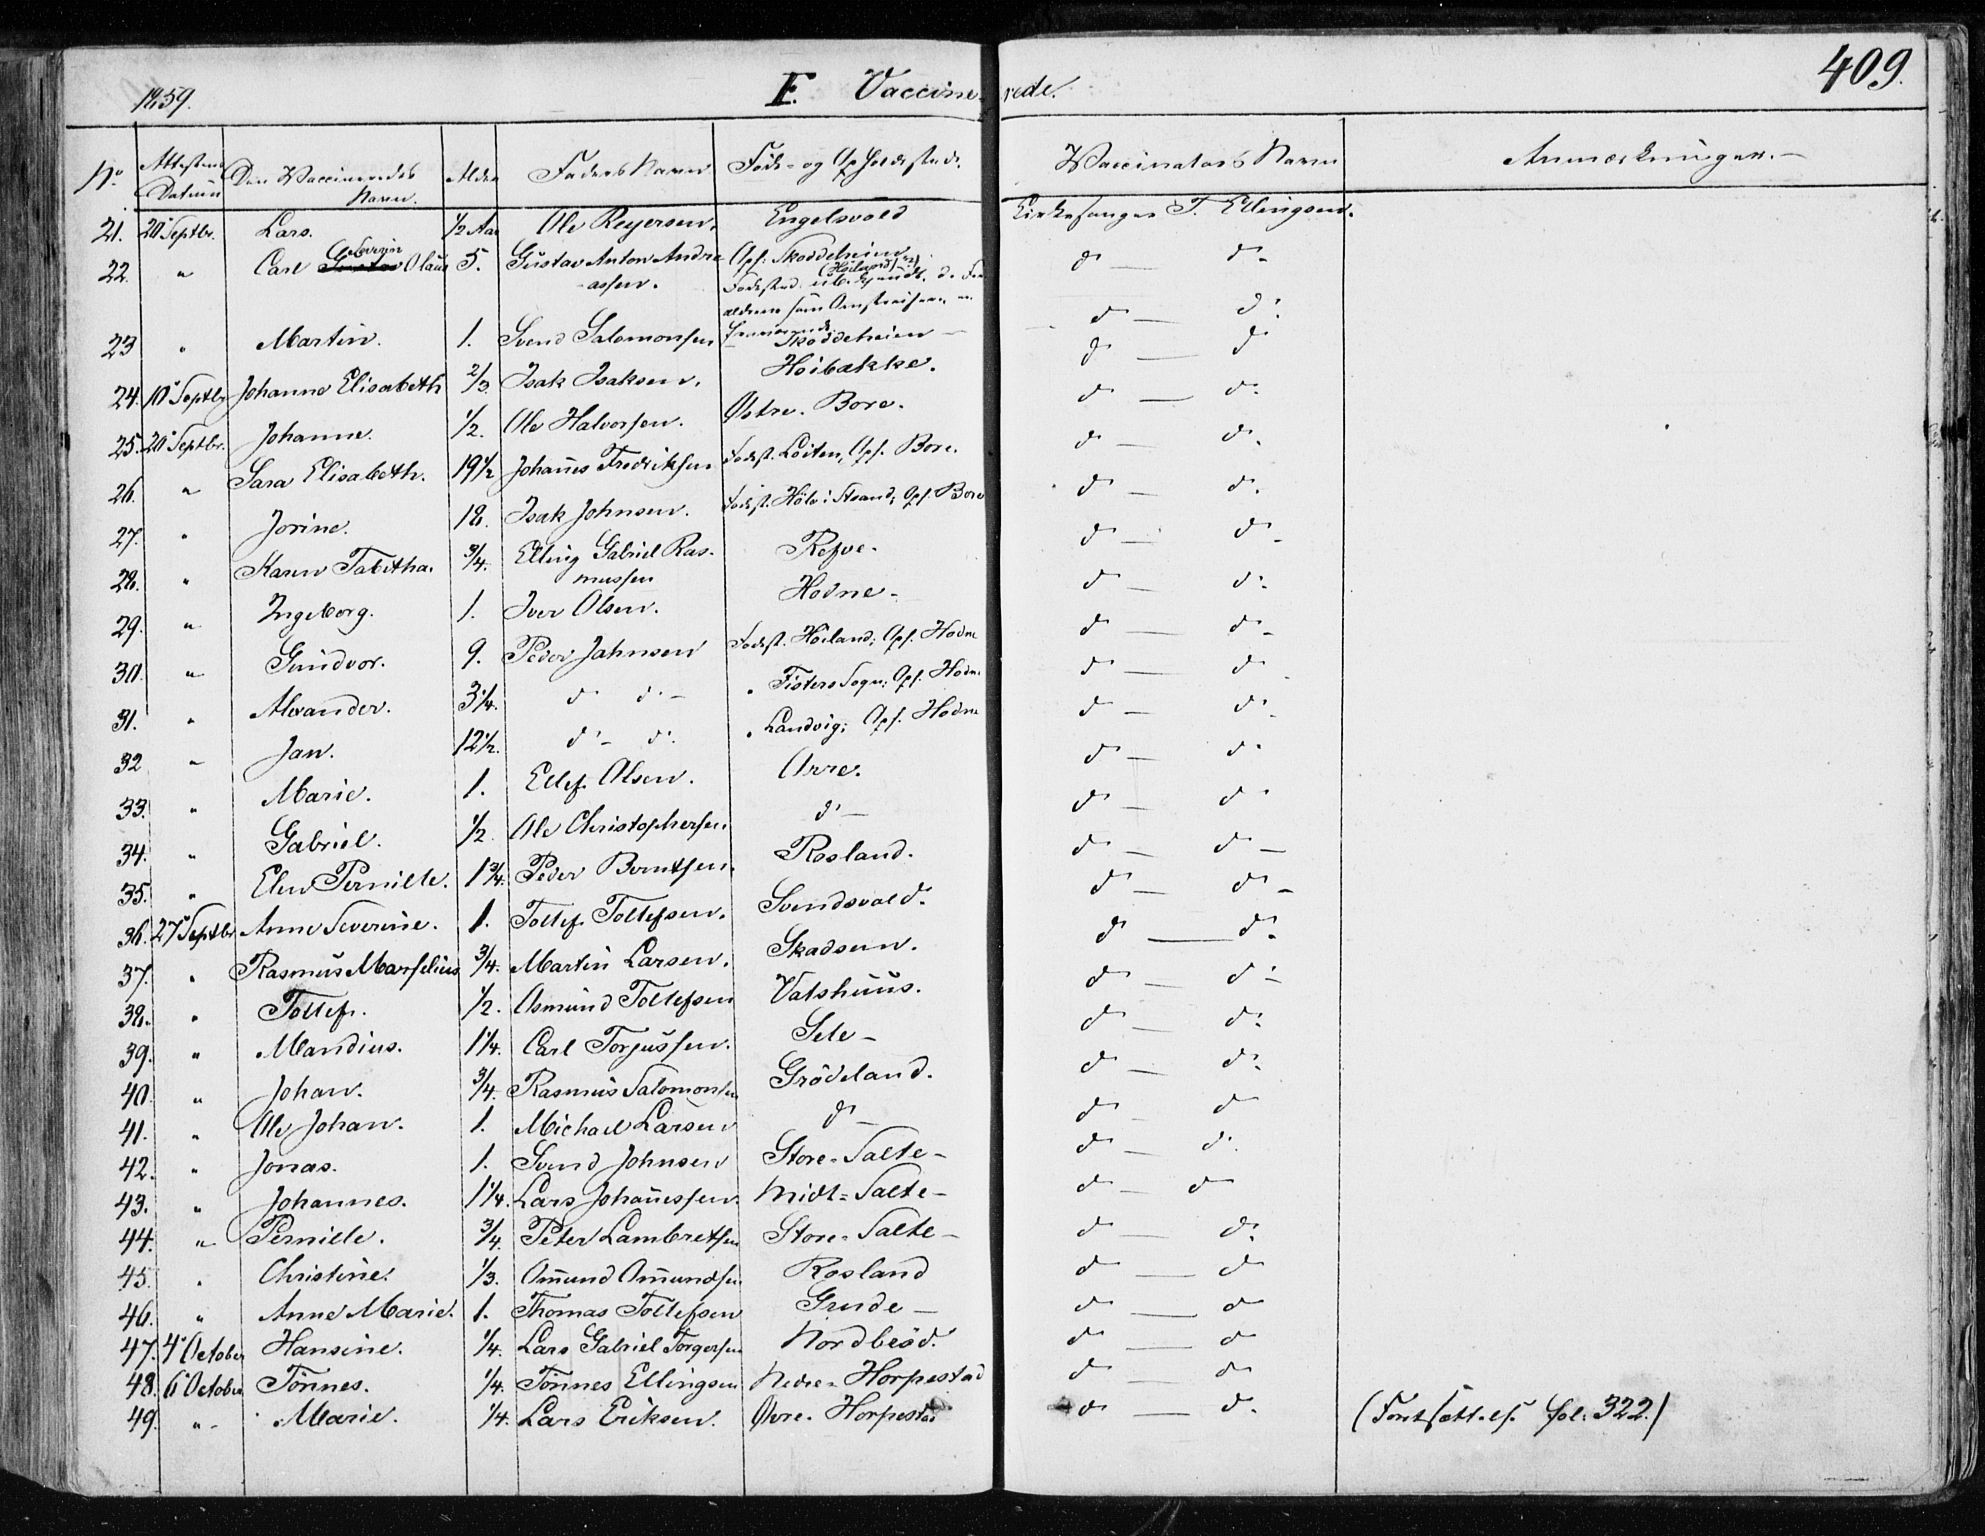 1859. F. Vaccinerede. 409.
No Attestens Datum Den Vaccineredes Navn. Alder Faders Navn Føde- og Opholdssted. Vaccinators Navn Anmærkninger.
21. 20 Septbr. Lars. 1/2 Aar Ole Reyersen. Engelsvold Kirkesanger T. Ellingsen.
22. " Carl Gustav Severin Olaus 5. Gustav Anton Andreassen. Oph: Skoddeheien. Fødested d° — d°
23 " Martin. 1. Svend Salomonsen Skoddeheien d° — d°
24. 10 Septbr Johanne Elisabeth 2/3 Isak Isaksen. Høibakke. d° — d°
25. 20 Septbr. Johanne. 1/2. Ole Halvorsen. Østre-Bore. d° — d°
26. " Sara Elisabeth. 19 1/2 Johañes Fredriksen Fødest. Løiten, Oph. Bore. d° — d°
27. " Jorine. 18. Isak Johnsen. Fødest. Høle i Strand; Oph. Bore d° — d°
28. " Karen Tabitha. 3/4. Elling Gabriel Rasmussen Refve. d° — d°
29. " Ingeborg. 1. Iver Olsen. Hodne- d° — d°
30. " Gundvor. 9. Peder Jahnsen Fødest. Høiland; Oph. Hodne d° — d°
31. " Alexander. 3 1/4. d° d° - " Fisters Sogn; Oph. Hodne d° — d°
32 " Jan. 12 1/2. d° - d° " Landvig; Oph. Hodne d° — d°
33. " Marie. 1. Ellef Olsen. Orre. d° — d°
34. " Gabriel. 1/2 Ole Christophersen. d° — d° — d°
35. " Elen Pernille. 1 3/4. Peder Berntsen. Rosland. d° — d° —
36. 27 Septbr Anne Severine. 1. Tollef Tollefsen. Svendsvold. d° — d° -
37. " Rasmus Marselius 3/4. Martin Larsen. Skadsem. d° — d°
38. " Tollef. 1/2. Osmund Tollefsen Vatshuus. d° — d°
39. " Mandius. 1 1/4. Carl Torjussen. Sele - d° — d°
40. " Johan. 3/4. Rasmus Salomonsen Grødeland. d° — d°
41. " Ole Johan. 1. Michael Larsen d° - d° — d°
42. " Jonas. 1. Svend Johnsen Store-Salte - d° — d°
43. " Johannes. 1 1/4. Lars Johañessen. Midt-Salte - d° — d°
44. " Pernille. 3/4. Peter Lambretsen Store-Salte - d° — d°
45. " Christine. 1/3. Omund Omundsen Rosland d° — d°
46. " Anne Marie. 1. Thomas Tollefsen Grude — d° — d°
47. 4 October Hansine. 1/4. Lars Gabriel Torgersen Nordbrød. d° — d°
48. 6 October Tönnes. 1/4. Tönnes Ellingsen Nedre-Horpestad d° — d°
49. " Marie. 1/4. Lars Eriksen. Øvre-Horpestad d° — d° (Fortsættelse fol. 322.)